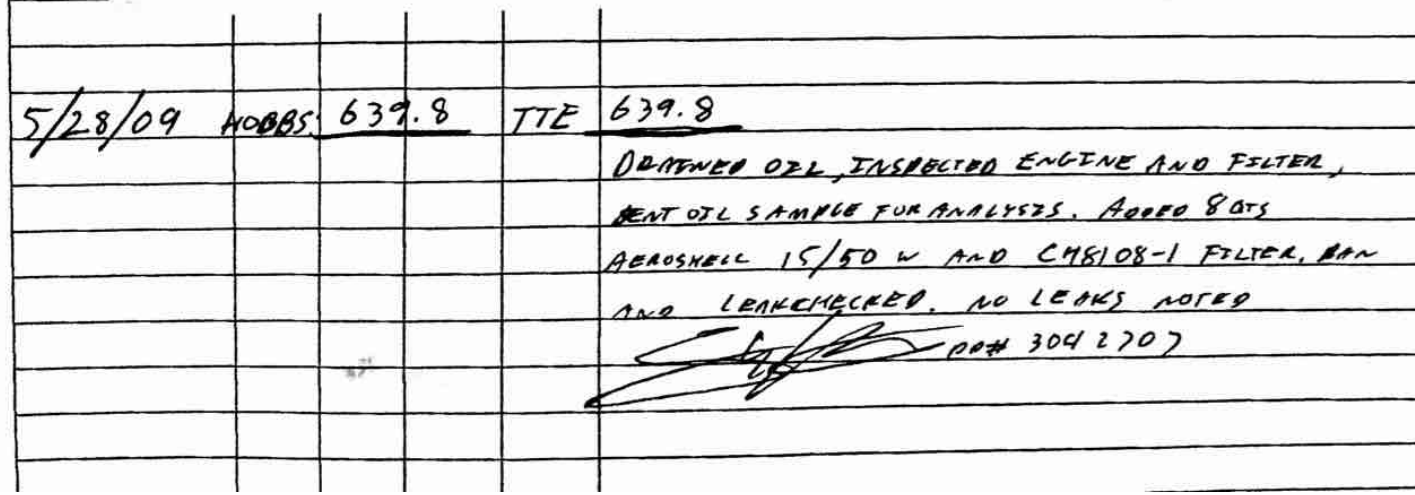 5/28/09 HOBBS: 639.8 TTE 639.8
DRAINED OIL, INSPECTED ENGINE AND FILTER,
SENT OIL SAMPLE FOR ANALYSIS. ADDED 8 QTS
AEROSHELL 15/50 W AND CH48108-1 FILTER. RAN
AND LEAKCHECKED. NO LEAKS NOTED
PP# 3042707